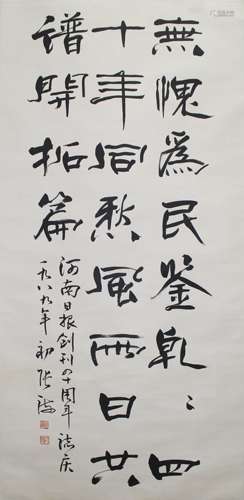 無愧爲民鉴乾乾四
十年同愁風雨日共
譜開拓篇
河南日报創刊四十周年誌庆
一九八九年初 张海